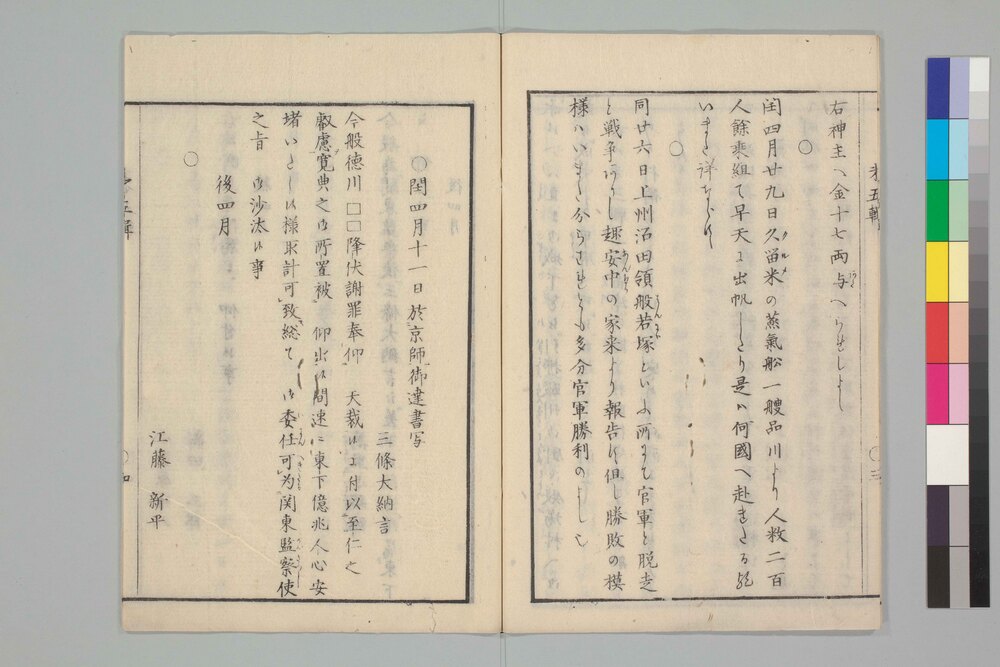 右神主へ金十七両与へられしよし
○
閏四月廿九日久留米の蒸氣舩一艘品川より人数二百
人餘乗組て早天に出帆したり是は何國へ赴きたる歟
いまた詳ならす
○
同廿六日上州沼田領般若塚といふ所にて官軍と脱走
と戦争ありし趣安中の家来より報告有但し勝敗の模
様ハいまた分らされとも多分官軍勝利のよし也
第五輯
○三
○閏四月十一日於京師御達書写
三條大納言
今般徳川□□降伏謝罪奉仰 天裁候に付以至仁之
叡慮寛典之御所置被 仰出候間速ニ東下億兆人心安
堵いたし候様取計可致総て 御委任可為関東監察使
之旨 御沙汰候事
後四月
○
江藤 新平